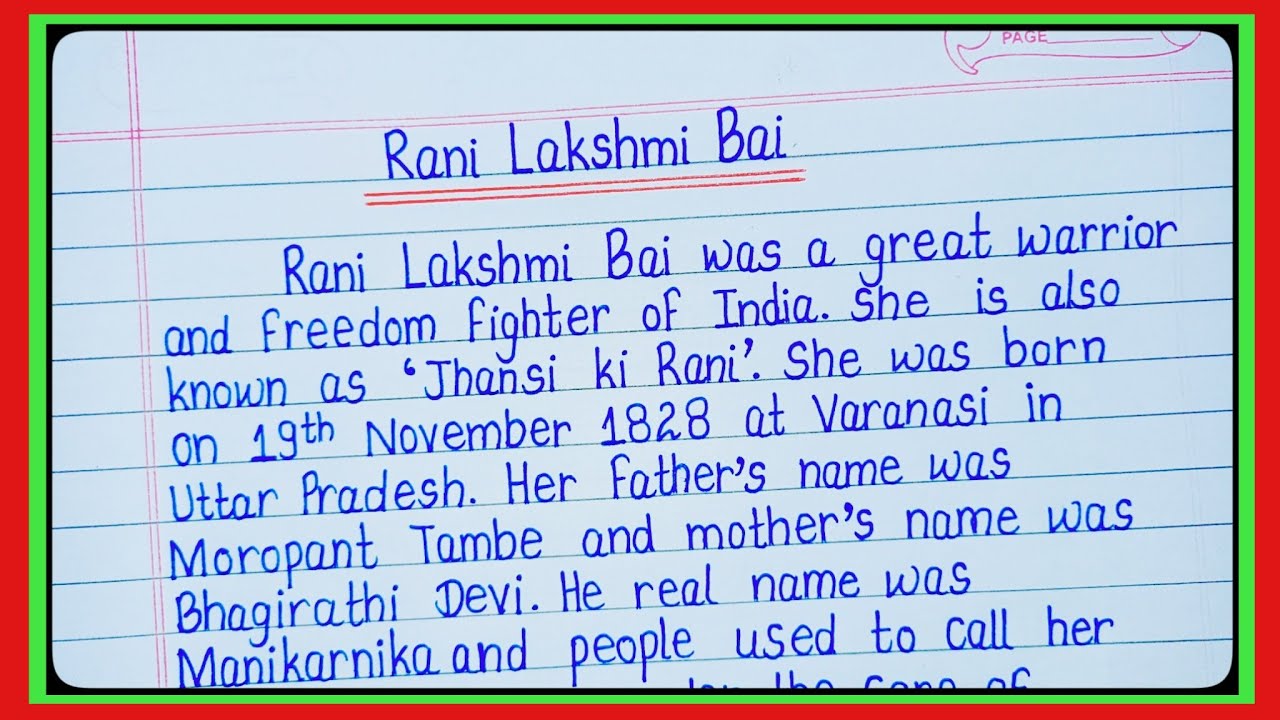 PAGE
Rani Lakshmi Bai
Rani Lakshmi Bai was a great warrior
and freedom fighter of India. She is also
known as ‘Jhansi ki Rani’. She was born
on 19th November 1828 at Varanasi in
Uttar Pradesh. Her father's name was
Moropant Tambe and mother's name was
Bhagirathi Devi. He real name was
Manikarnika and people used to call her
the care of